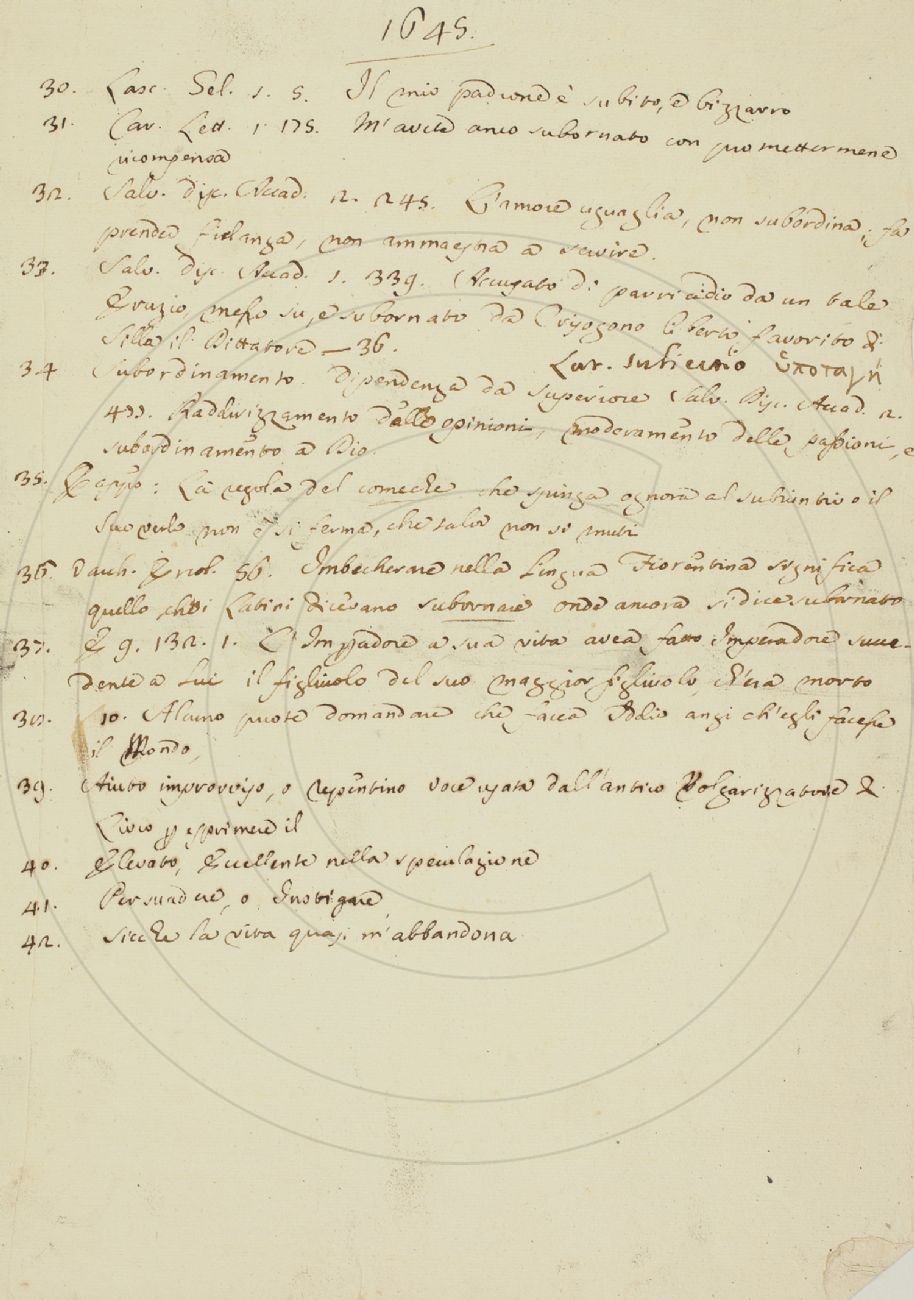 1645.
30. Lasc. Gel. 1. 5. Il mio padrone è subito, e bizzarro
31. Car. Lett. 1. 175. M'avete anco subornato con promettermene
ricompensa
32. Salv. disc. Accad. 2. 245. L'amore uguaglia, non subordina; fa
prender fidanza, non ammaestra a servire.
33. Salv. disc. Accad. 1. 339. Accusato di parricidio da un tale
Eruzio messo su, e subornato da Crisogono liberto favorito di
Silla il Dittatore — 36.
Lat. subiectio ὑποταγή
34 Subordinamento. Dipendenza da superiore Salv. Disc. Accad. 2.
Raddirizzamento delle opinioni, moderamento delle passioni, e
subordinamento a Dio.
35. E appo: La regola del comeche che spinga ognora al subiuntivo o il
suo verbo non è sì ferma, che talor non si muti
36. Varch. Ercol. 56. Imbecherare nella lingua Fiorentina significa
quello chei Latini dicevano subornare onde ancora si dice subornato
37. E g. 132. 1. L'Imperadore a sua vita avea fatto Imperadore succe-
dente a lui il figliuolo del suo maggior figliuolo ch'era morto
38. 10. Alcuno puote domandare che facea Iddio anzi ch'egli facesse
il Mondo,
39. Aiuto improvviso, o repentino voce usata dall'antico Volgarizzatore di
Livio p esprimere il
40. Elevato, Eccellente nella speculazione
41. Persuadere, o Instigare
42. Sicche la vita quasi m'abbandona